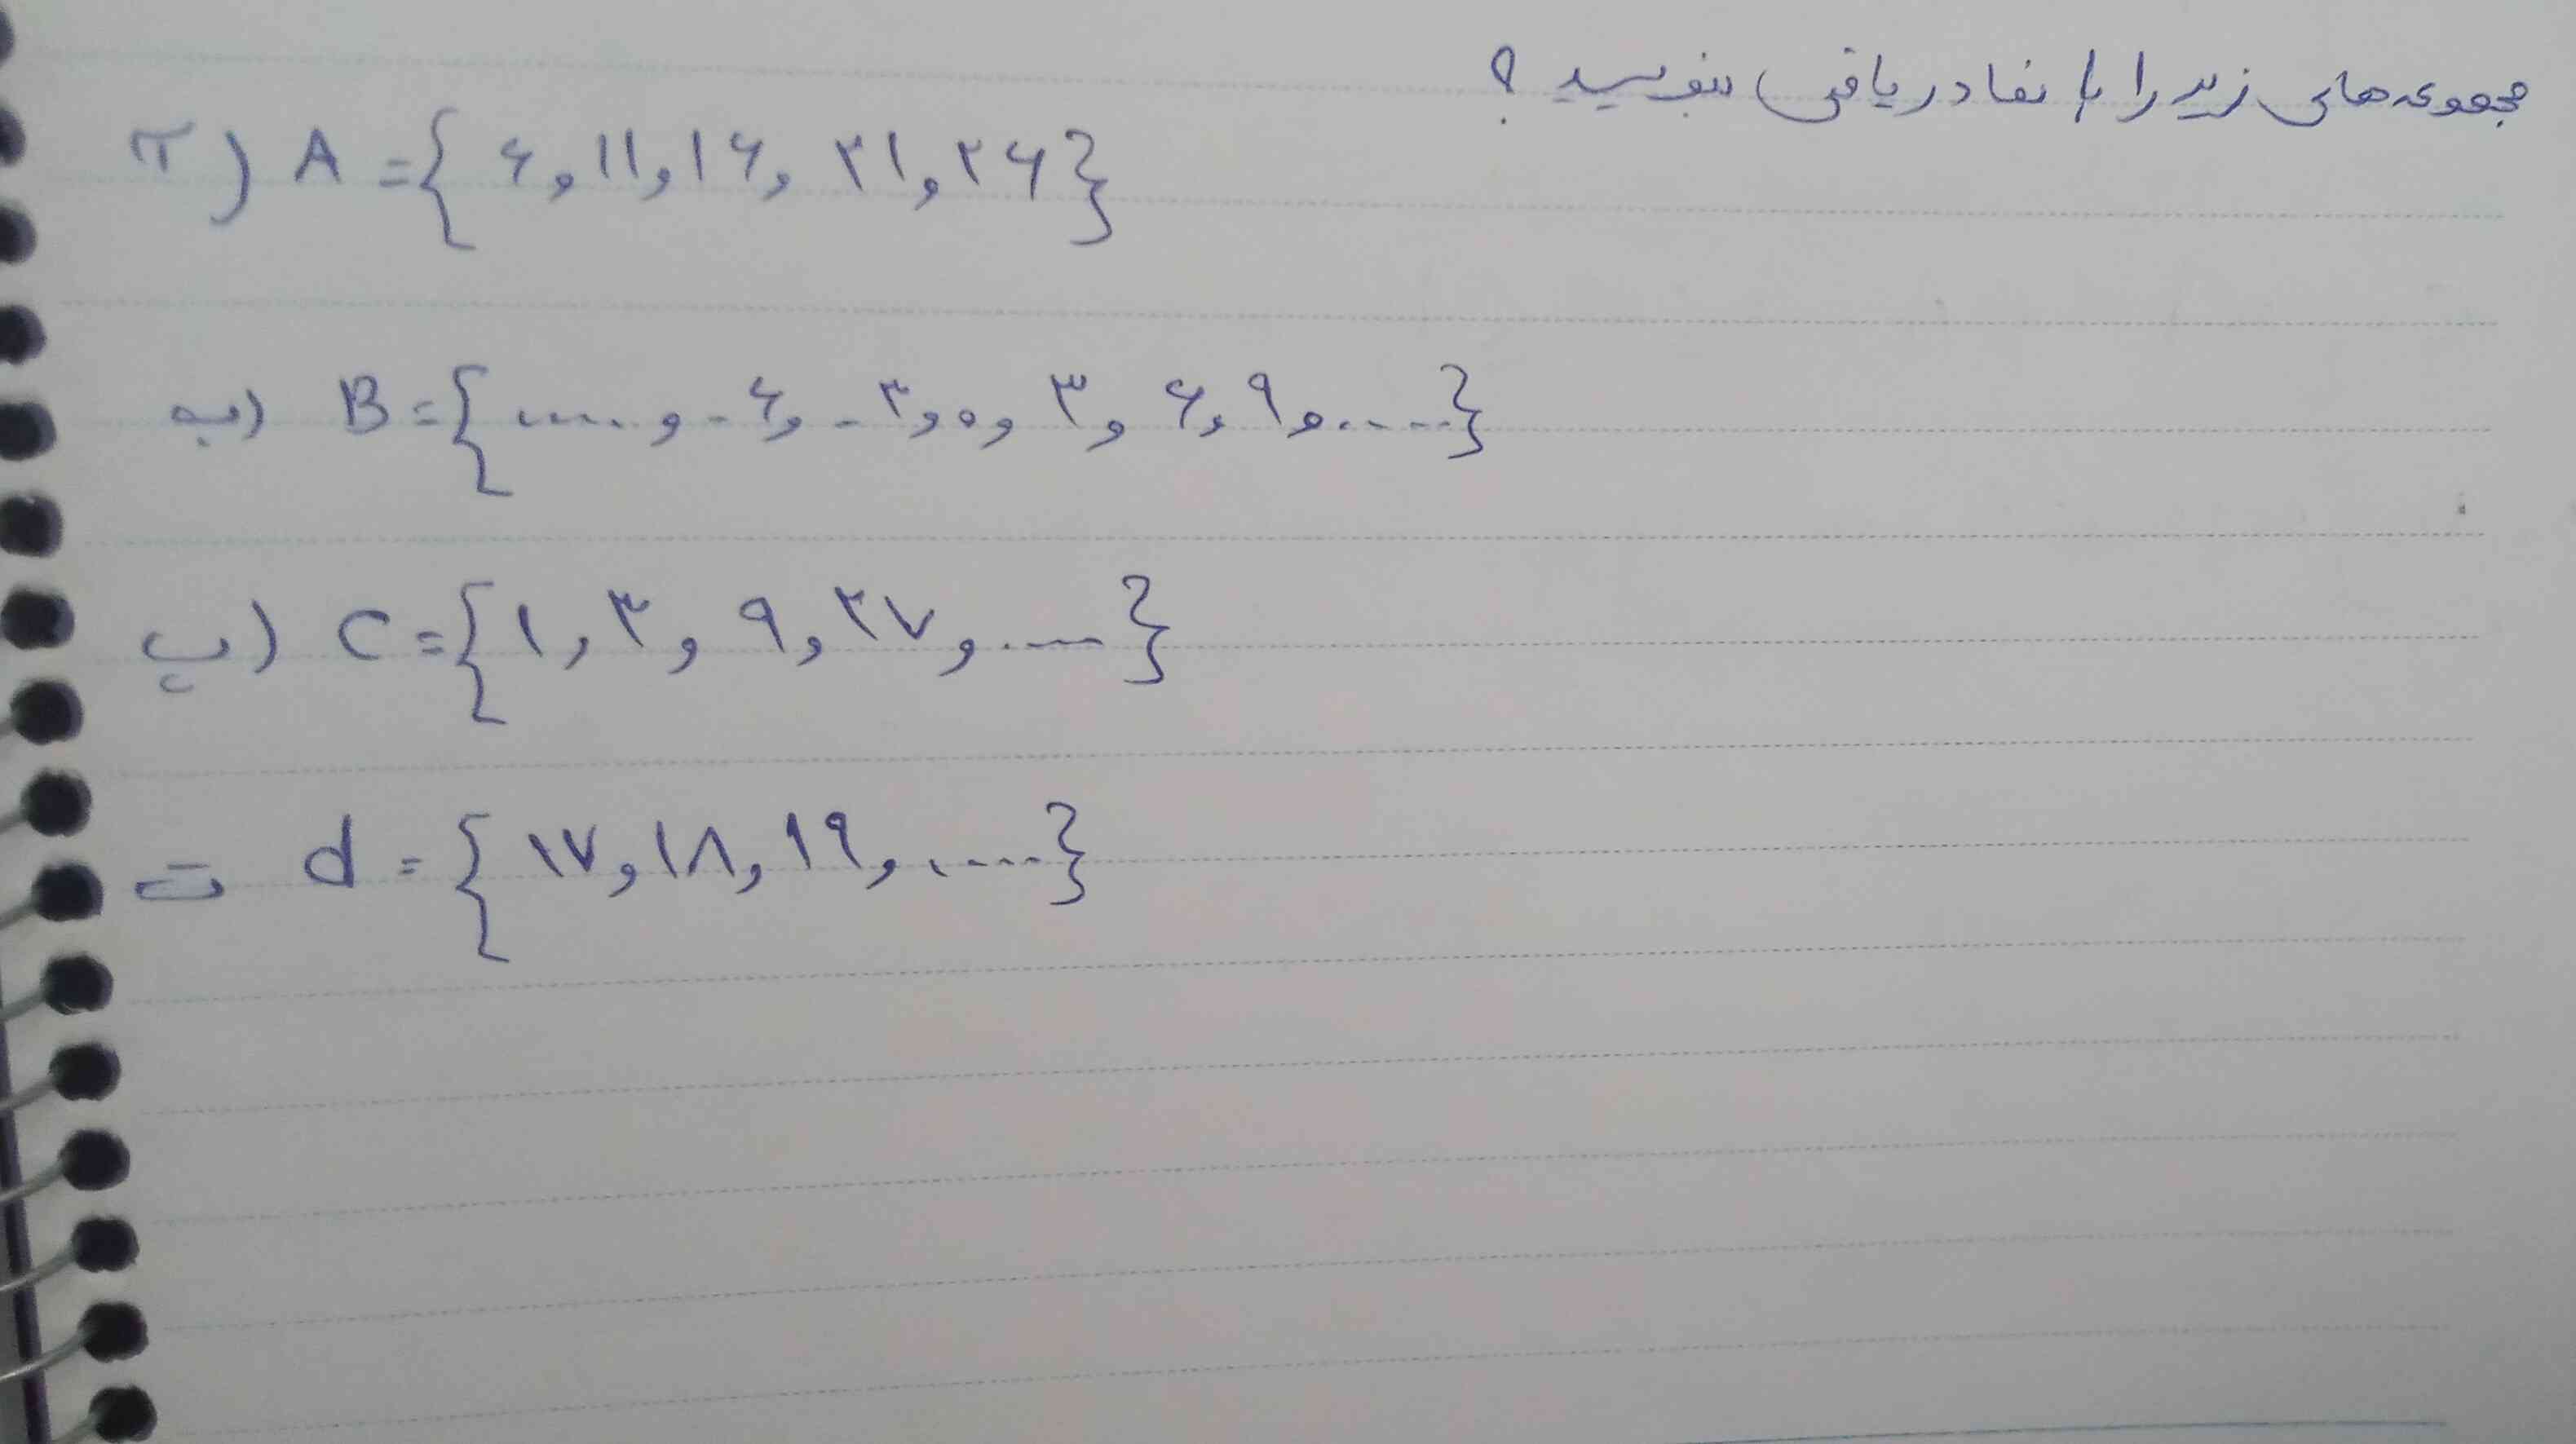 مجموعه های زیر را با نماد ریاضی بنویسید ؟
آ) A = { ۶, ۱۱, ۱۶, ۲۱, ۲۶ }
ب) B = { ..... , -۶, -۳, ۰, ۳, ۶, ۹, ..... }
پ) C = { ۱, ۳, ۹, ۲۷, .... }
ت d = { ۱۷, ۱۸, ۱۹, ..... }